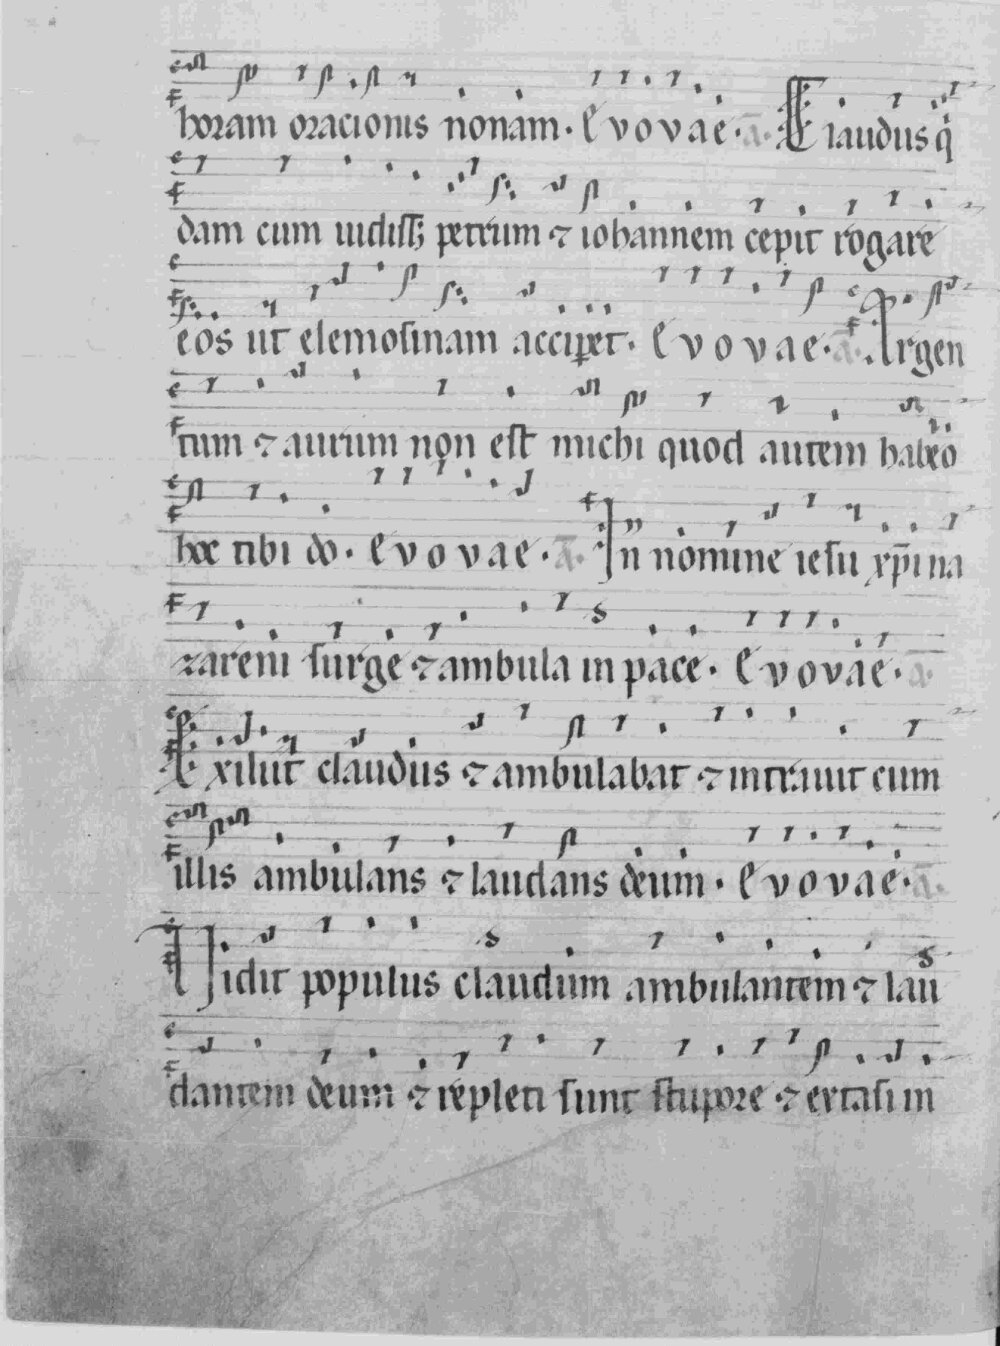 horam oracionis nonam. Evovae. A̅. Claudus q
dam cum uidiss; petrum ⁊ iohannem cepit rogare
eos ut elemosinam acciꝑet. Evovae. A̅. Argen
tum ⁊ aurum non est michi quod autem habeo
hoc tibi do. Evovae. A̅. In nomine iesu xp̅i na
zareni surge ⁊ ambula in pace. Evovae. A̅.
Exiliit claudus ⁊ ambulabat ⁊ intrauit cum
illis ambulans ⁊ laudans deum. Evovae. A̅.
Uidit populus claudum ambulantem ⁊ lau
dantem deum ⁊ repleti sunt stupore ⁊ extasi in